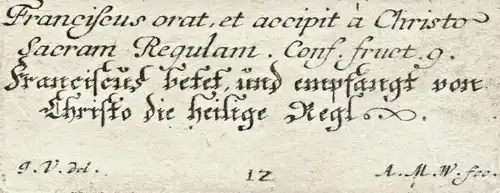 Franciſcus orat, et accipit à Christo
Sacram Regulam. Conf. fruct. 9.
Franciſcus betet, und empfangt von
Christo die heilige Regl.
g. V. del. 12 A. M. W. fec.